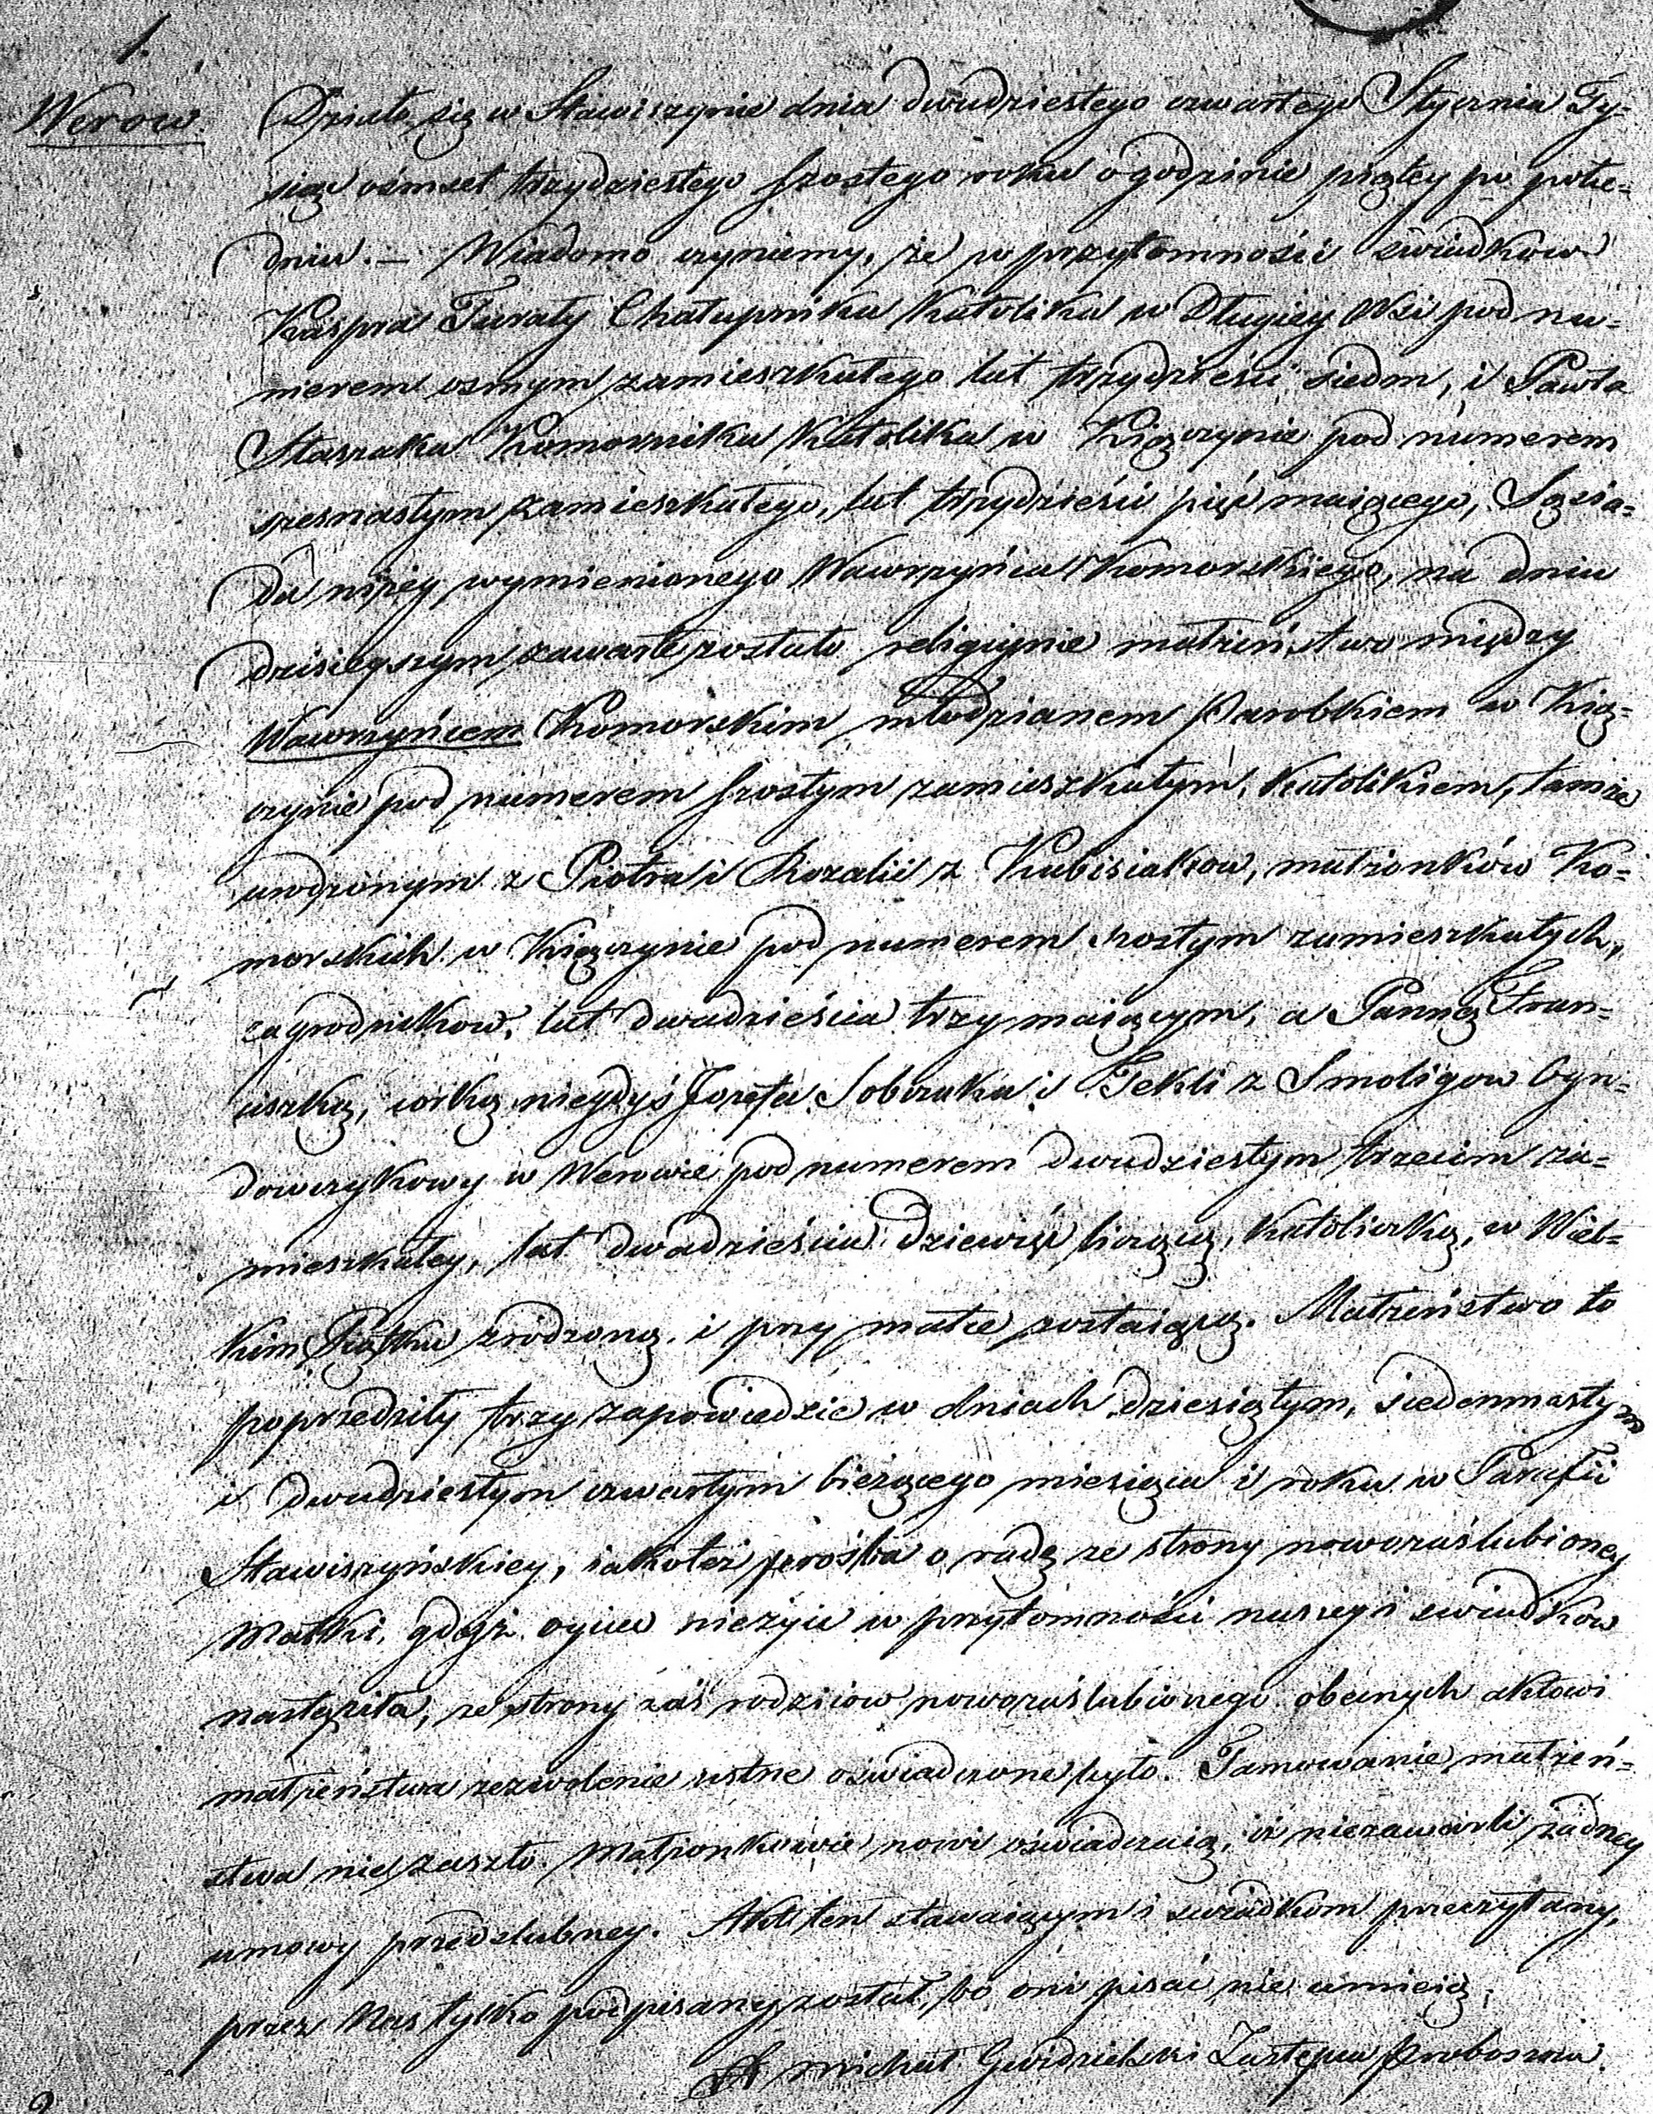 1.
Werow.
Działo się w Stawiszynie dnia dwudziestego czwartego Stycznia Ty-
siąc ośmset trzydziestego szostego roku o godzinie piątey po połu-
dniu. – Wiadomo czyniemy, że w przytomności świadkow
Kaspra Turały Chałupnika Katolika w Długiey Wsi pod nu-
merem osmym zamieszkałego lat trzydzieści siedm, i Pawła
Staszaka Komornika Katolika w Kiączynie pod numerem
szesnastym zamieszkałego, lat trzydzieści pięć maiącego, Sąsia-
da niżey wymienionego Wawrzyńca Komorskiego, na dniu
dzisieyszym zawarte zostało religijnie małżeństwo między
Wawrzyńcem Komorskim młodzianem Parobkiem w Kią-
czynie pod numerem szostym zamieszkałym, Katolikiem, tamże
urodzonym z Piotra i Rozalii z Kubisiakow, małżonków Ko-
morskich w Kiączynie pod numerem szostym zamieszkałych,
zagrodnikow, lat dwadzieścia trzy maiącym, a Panną Fran-
ciszką, córką niegdyś Jozefa Sobczaka i Tekli z Smoligow
w Werowie pod numerem dwudziestym trzecim za-
mieszkałey, lat dwadzieścia dziewięć liczącą, Katoliczką, w Wiel-
kim Piątku zrodzoną, i przy matce zostaiącą. Małżeństwo to
poprzedziły trzy zapowiedzie w dniach dziesiątym, siedemnastym
i dwudziestym czwartym bieżącego miesiąca i roku w Parafii
Stawiszyńskiey, iakoteż prośba o radę ze strony nowozaślubioney
Matki, gdyż oyciec nieżyie w przytomności naszey i świadkow
nastąpiła, ze strony zaś rodziców nowozaślubionego obecnych aktowi
małżeństwa zezwolenie ustne oświadczone było. Tamowanie małżeń-
stwa nie zaszło. Małżonkowie nowi oświadczaią, iż niezawarli żadney
umowy przedślubney. Akt ten stawaiącym i świadkom przeczytany,
przez Nas tylko podpisany został, bo oni pisać nie umieią.
X Michał Zastępca Proboszcza.
2